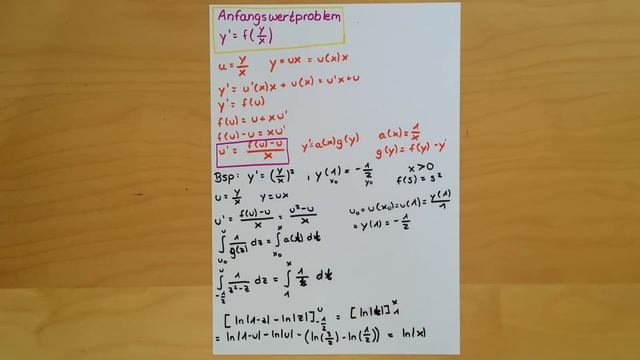 Anfangswertproblem
y' = f(y/x)
u = y/x   y = ux = u(x)x
y' = u'(x)x + u(x) = u'x + u
y' = f(u)
f(u) = u + xu'
f(u) - u = xu'
u' = (f(u) - u)/x   y' = a(x)g(y)   a(x) = 1/x
g(y) = f(y) - y
Bsp: y' = (y/x)², y(1) = -1/2   x > 0
x₀   y₀   f(s) = s²
u = y/x   y = ux
u' = (f(u) - u)/x = (u² - u)/x   u₀ = u(x₀) = u(1) = y(1)/1
= y(1) = -1/2
∫_{u₀}^{u} 1/g(z) dz = ∫_{x₀}^{x} a(t) dt
∫_{-1/2}^{u} 1/(z² - z) dz = ∫_{1}^{x} 1/t dt
[ln|1-z| - ln|z|]_{-1/2}^{u} = [ln|t|]_{1}^{x}
= ln|1-u| - ln|u| - (ln(3/2) - ln(1/2)) = ln|x|